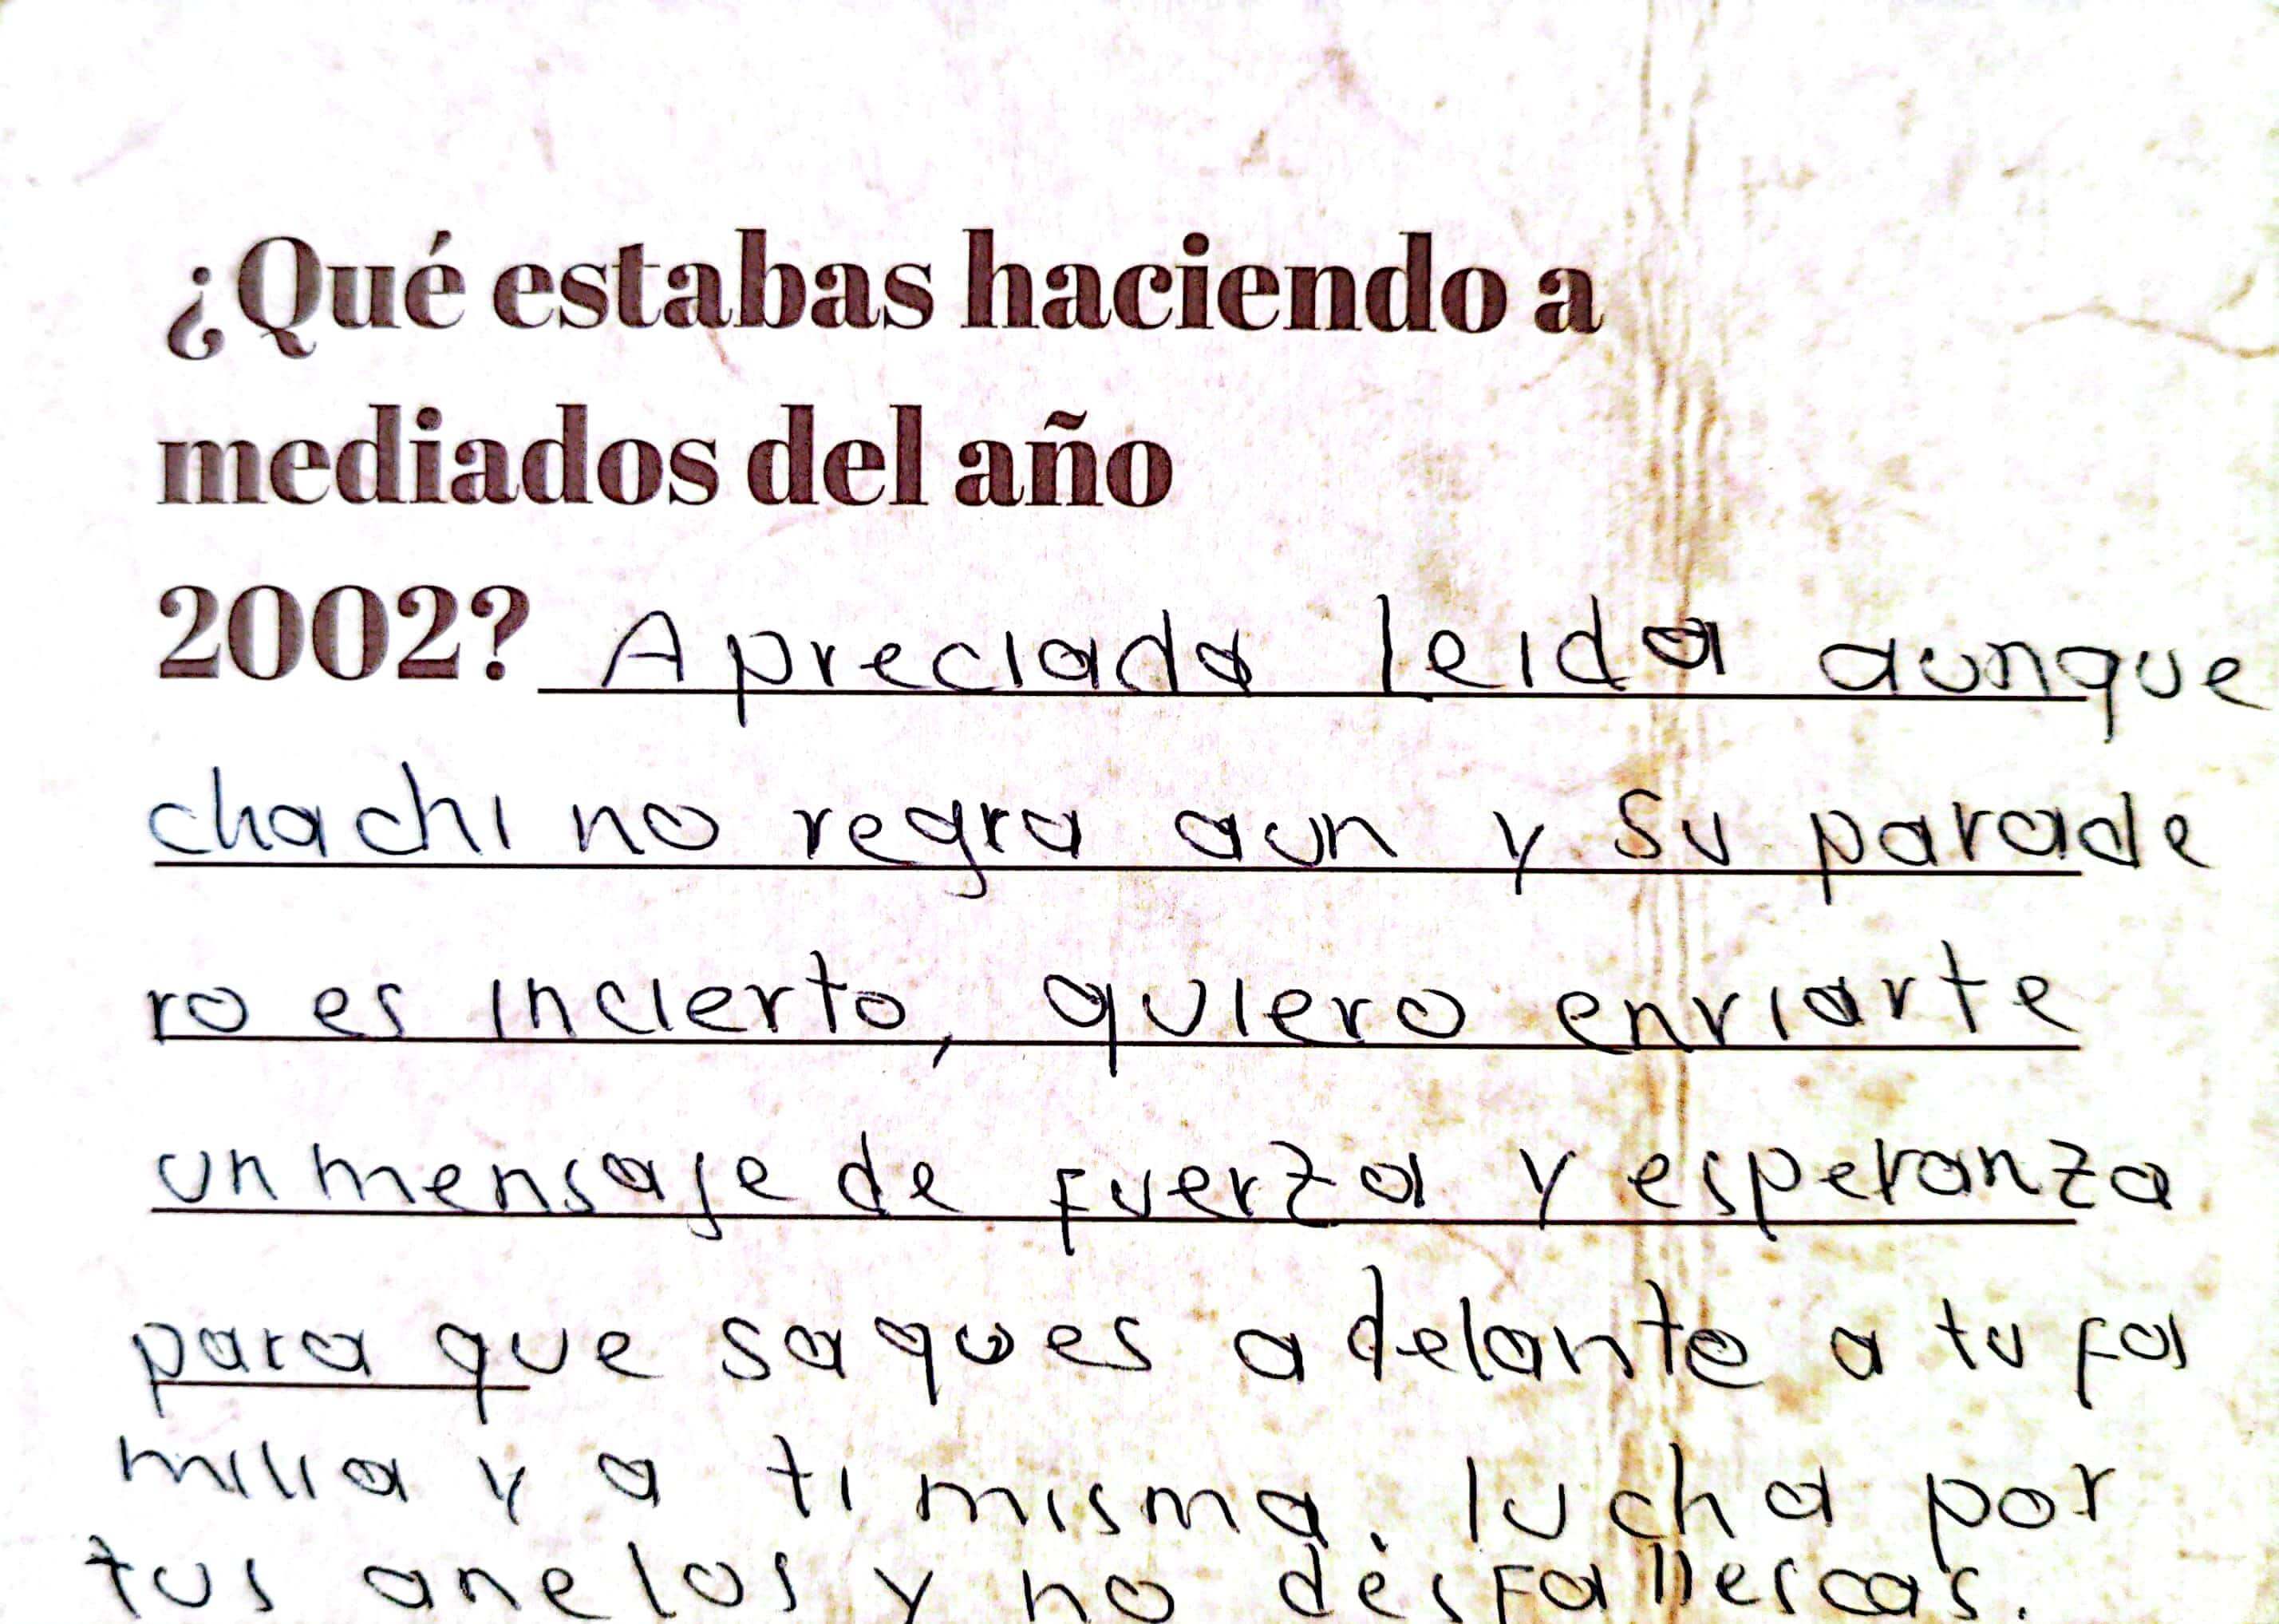 ¿Qué estabas haciendo a
mediados del año
2002? Apreciada leida aunque
chachi no regra aun y su parade
ro es incierto, quiero enviarte
un mensaje de fuerza y esperanza
para que saques adelante a tu fa
milia y a ti misma. lucha por
tus anelos y no desfallescas.